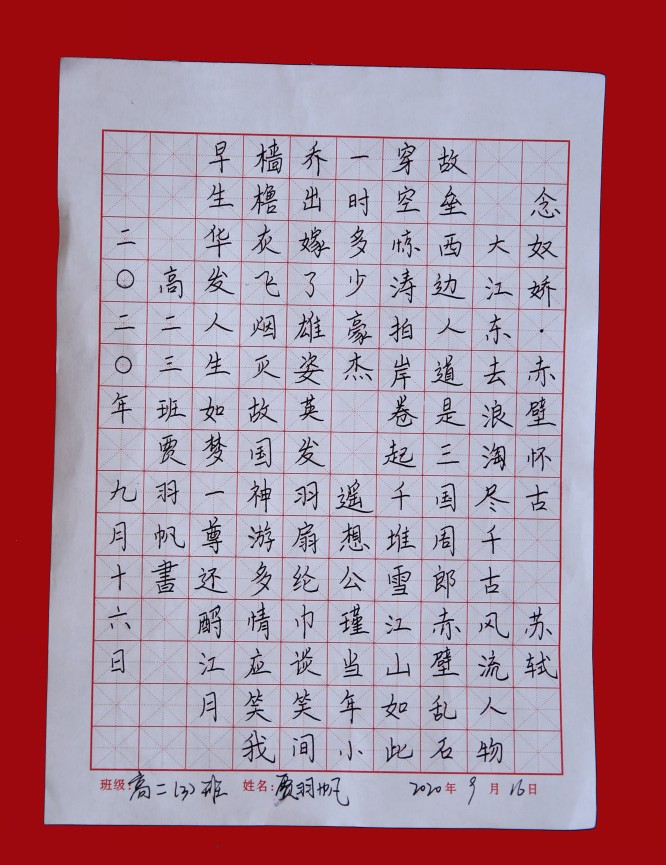 念奴娇·赤壁怀古 苏轼
大江东去浪淘尽千古风流人物
故垒西边人道是三国周郎赤壁乱石
穿空惊涛拍岸卷起千堆雪江山如此
一时多少豪杰 遥想公瑾当年小
乔出嫁了雄姿英发羽扇纶巾谈笑间
樯橹灰飞烟灭故国神游多情应笑我
早生华发人生如梦一尊还酹江月
高二三班贾羽帆書
二〇二〇年九月十六日
班级:高二(3)班 姓名:贾羽帆 2020年9月16日